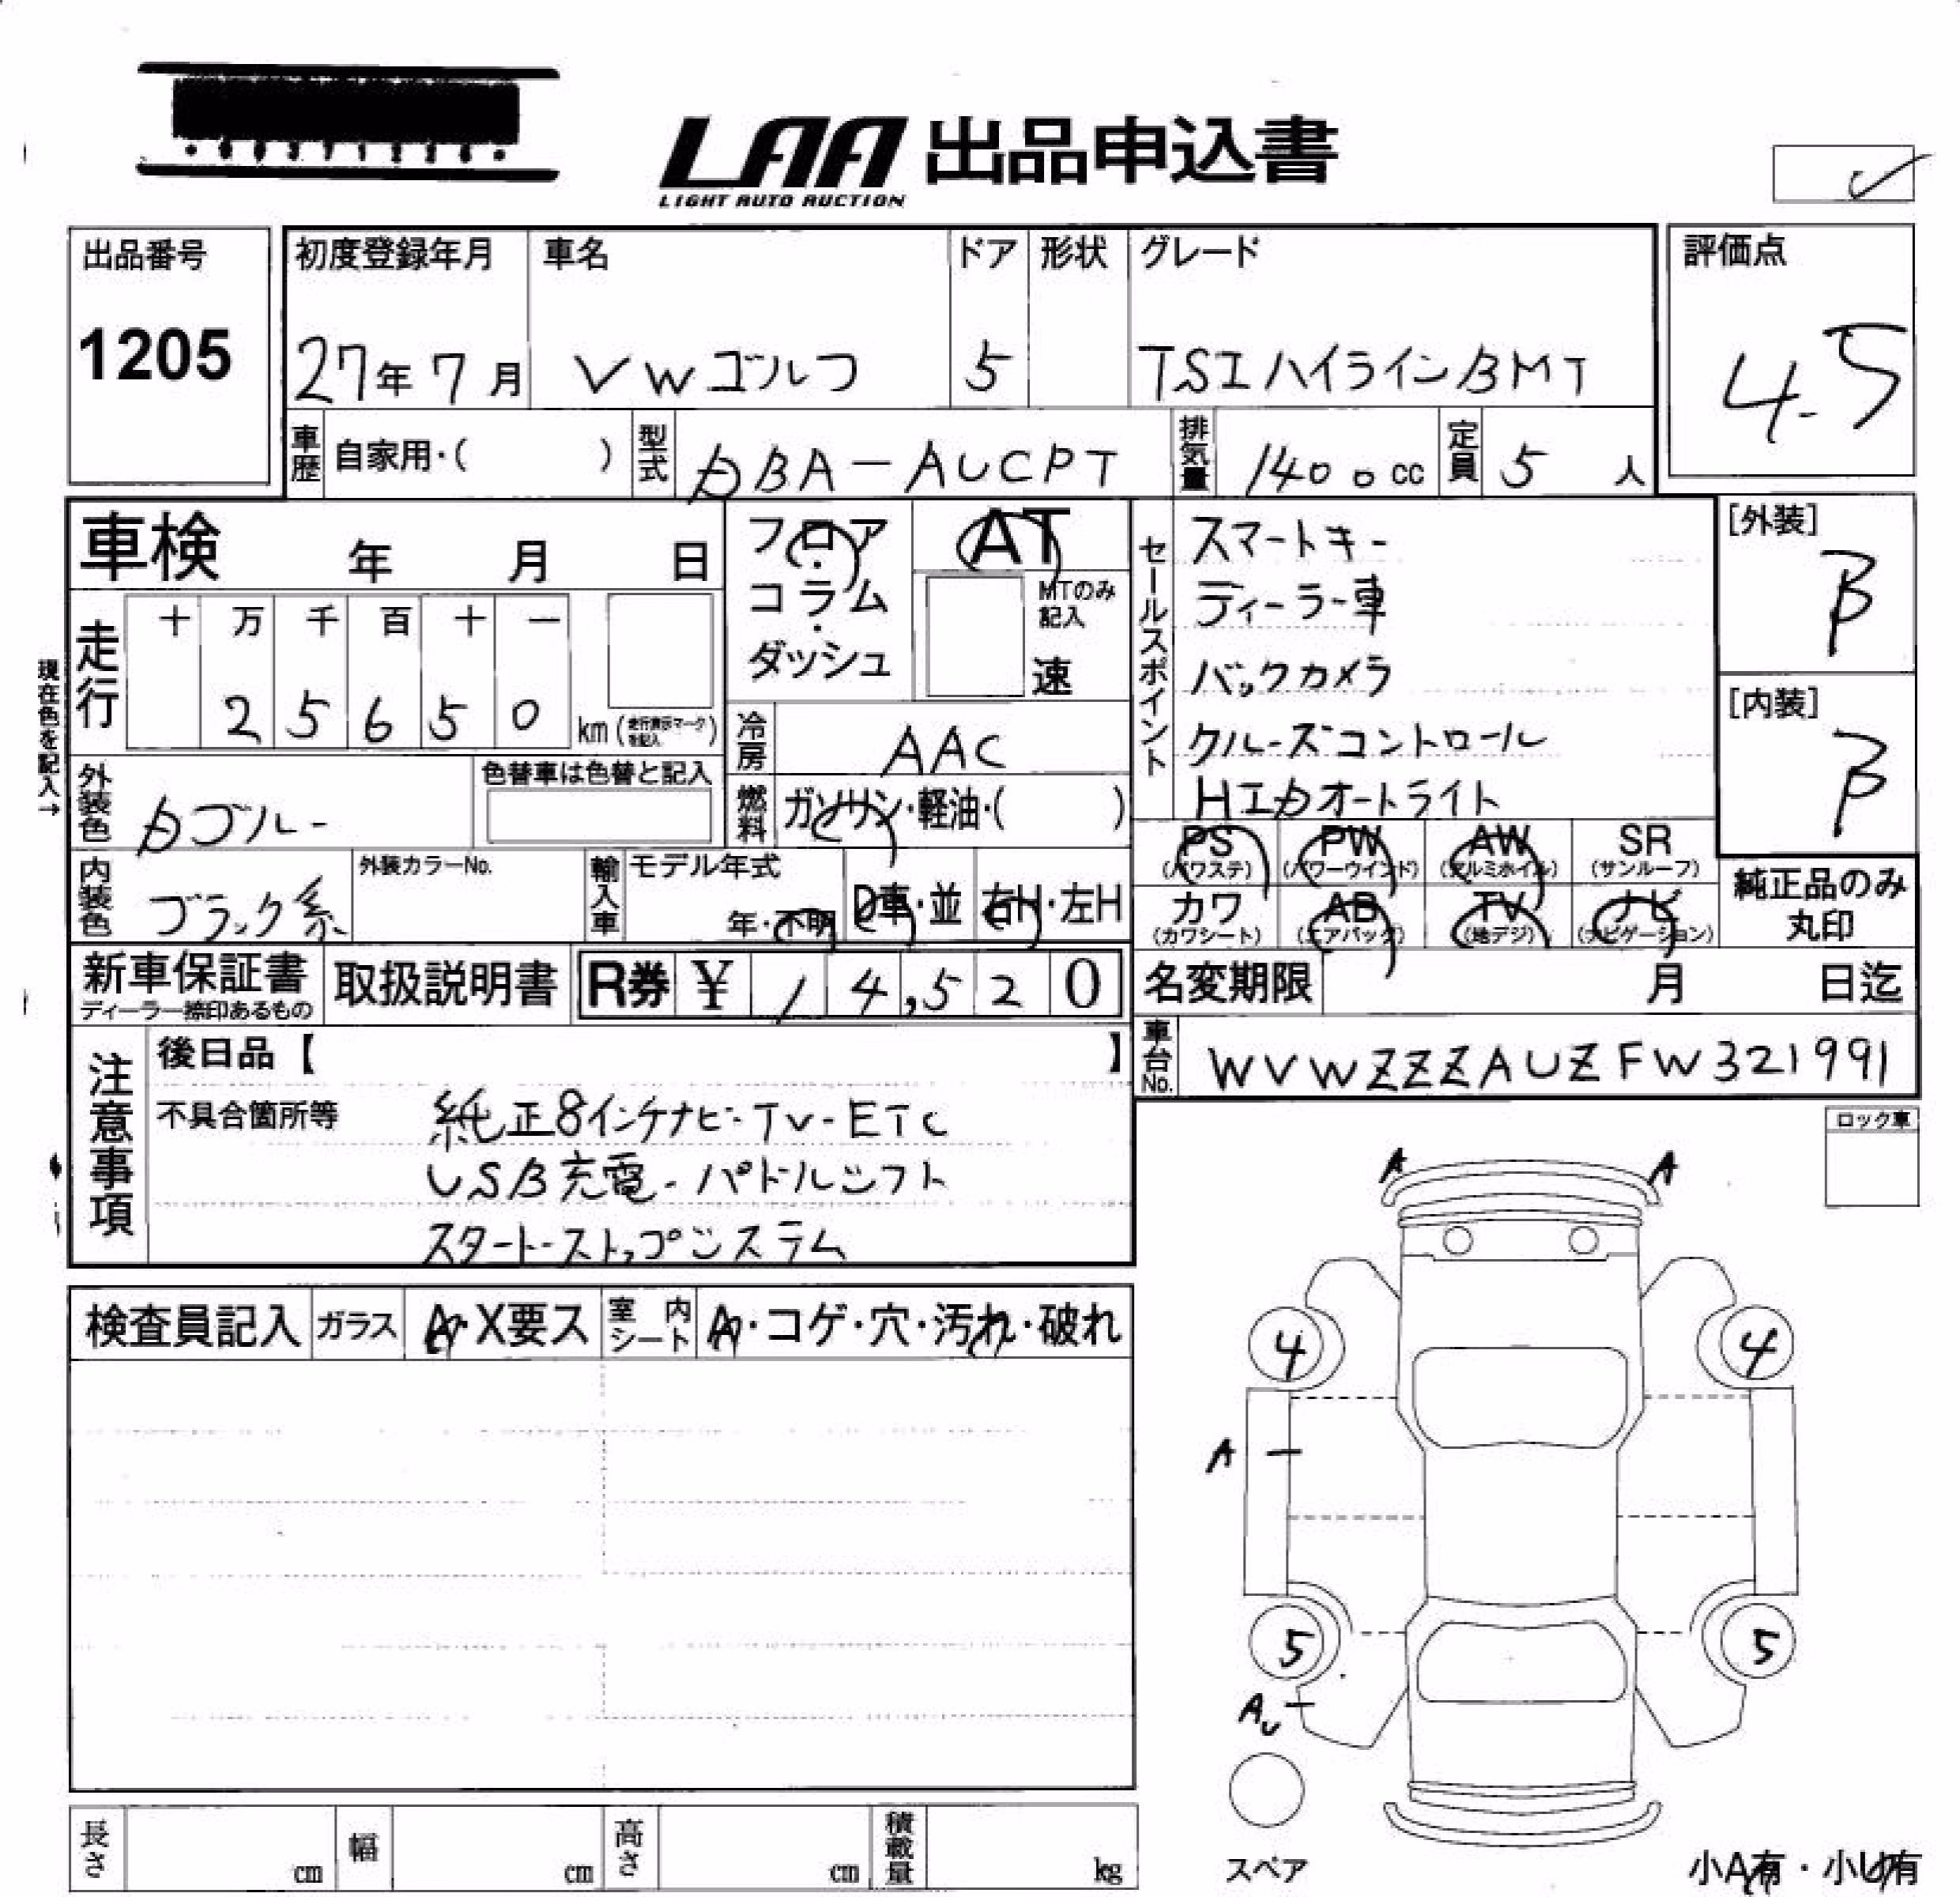 LAA 出品申込書
LIGHT AUTO AUCTION
出品番号
1205
初度登録年月
27年7月
車名
VWゴルフ
ドア
5
形状
グレード
TSIハイラインBMT
評価点
4.5
車歴 自家用・( )
型式 DBA-AUCPT
排気量 1400cc
定員 5人
車検 年 月 日
走行 十 万 千 百 十 一
2 5 6 5 0 km (走行表示マークを記入)
現在色を記入→
外装色 Dブルー
色替車は色替と記入
内装色 ブラック系
外装カラーNo.
フロア・コラム・ダッシュ
AT
MTのみ記入
速
冷房 AAC
燃料 ガソリン・軽油・( )
輸入車
モデル年式
年・不明
D車・並
右H・左H
セールスポイント
スマートキー
ディーラー車
バックカメラ
クルーズコントロール
HIDオートライト
[外装]
B
[内装]
B
PS (パワステ) PW (パワーウインド) AW (アルミホイル) SR (サンルーフ)
カワ (カワシート) AB (エアバッグ) TV (地デジ) ナビ (ナビゲーション)
純正品のみ丸印
新車保証書
ディーラー捺印あるもの
取扱説明書
R券 ¥ 14,520
名変期限 月 日迄
車台No. WVWZZZAUZFW321991
注意事項
後日品【 】
不具合箇所等
純正8インチナビ-TV-ETC
USB充電-パドルシフト
スタート-ストップシステム
ロック車
検査員記入
ガラス A・X要ス
室内シート A・コゲ・穴・汚れ・破れ
A A
4 4
A
5 5
AU
スペア
長さ cm 幅 cm 高さ cm 積載量 kg
小A有・小U有